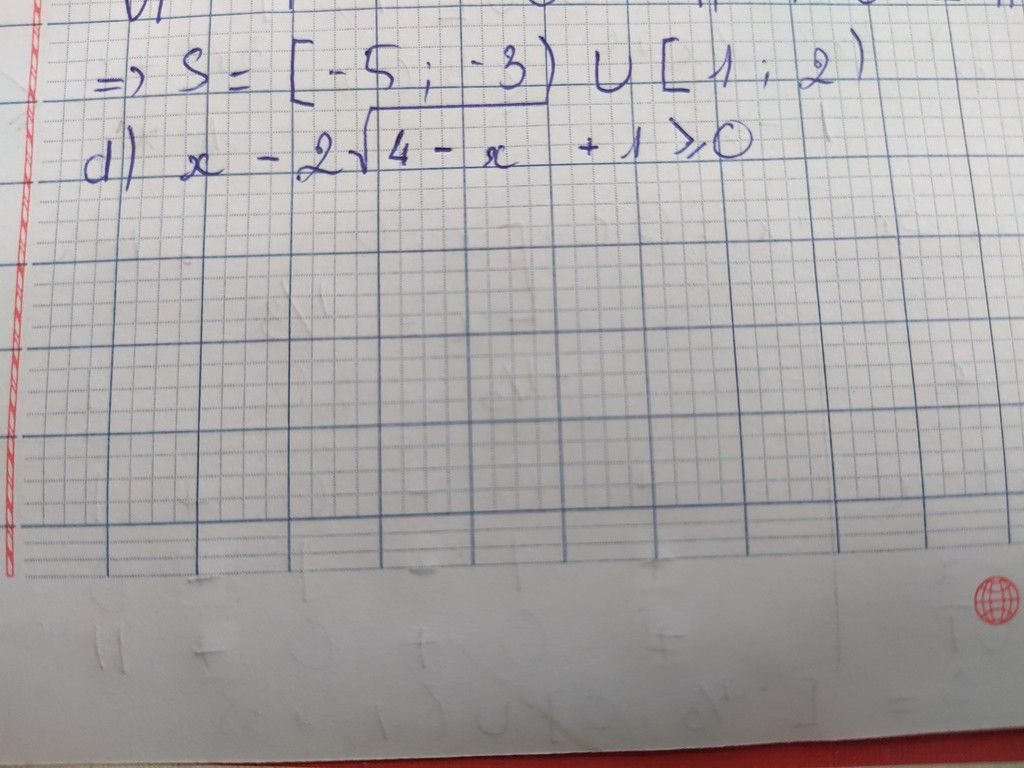 => S = [-5; -3) ∪ [1; 2)
d) x - 2√(4 - x) + 1 ≥ 0